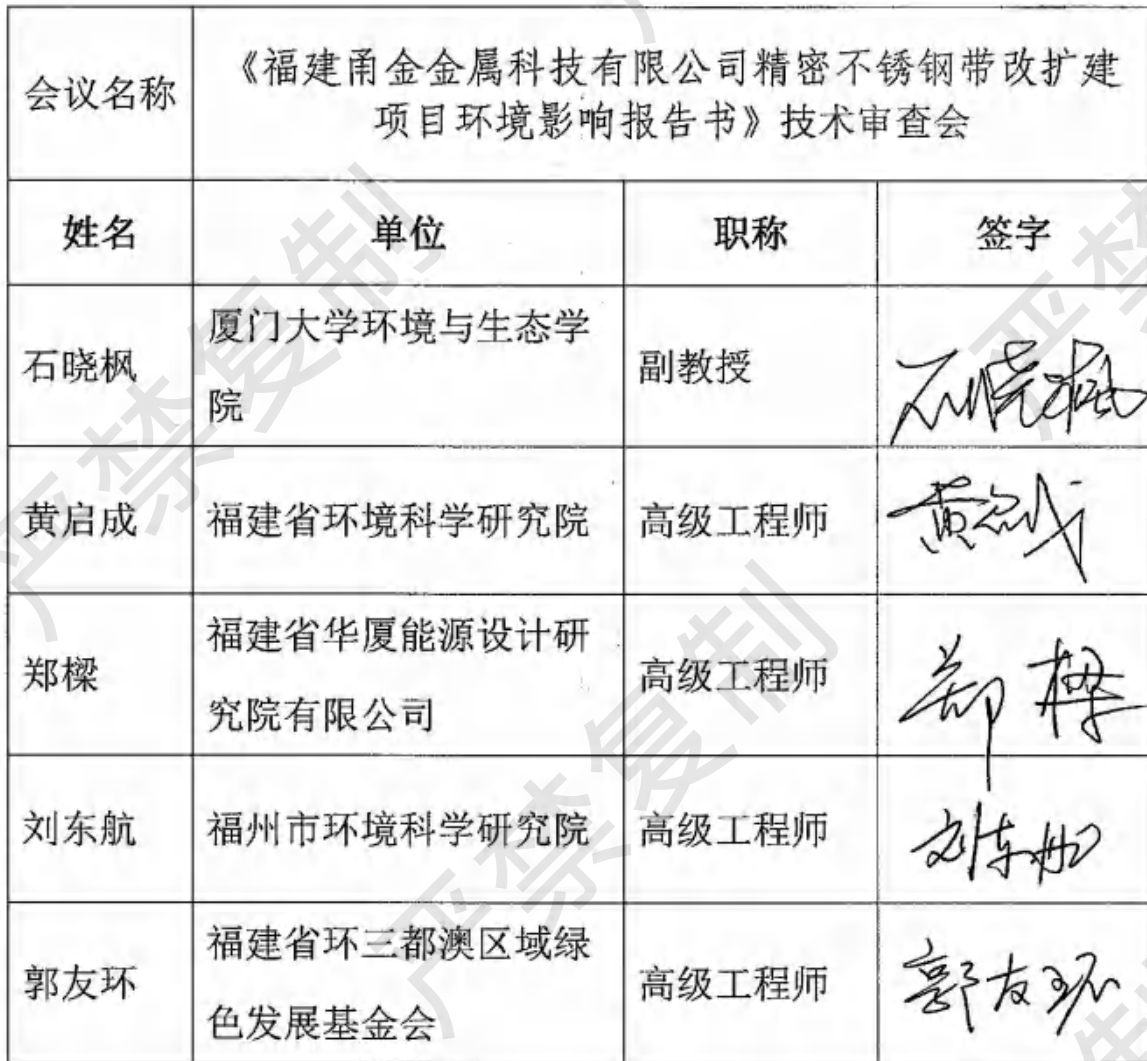 会议名称
《福建甬金金属科技有限公司精密不锈钢带改扩建
项目环境影响报告书》技术审查会
姓名 单位 职称 签字
石晓枫 厦门大学环境与生态学 副教授 石晓枫
院
黄启成 福建省环境科学研究院 高级工程师 黄启成
郑樑 福建省华厦能源设计研 高级工程师 郑樑
究院有限公司
刘东航 福州市环境科学研究院 高级工程师 刘东航
郭友环 福建省环三都澳区域绿 高级工程师 郭友环
色发展基金会
严禁复制
严禁复制
严禁